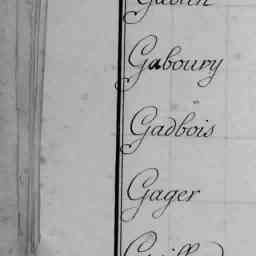 Gaboury
Gadbois
Gager